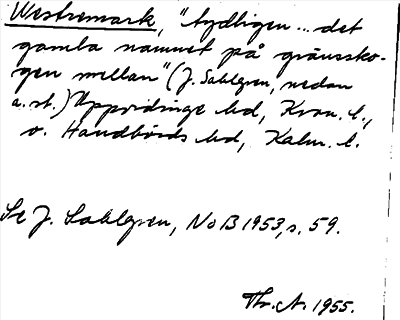 Westremark, "tydligen ... det
gamla namnet på gränssko-
gen mellan" (J. Sahlgren, nedan
a. st.) Uppvidinge hd, Kron. l.,
o. Handbörds hd, Kalm. l.
Se J. Sahlgren, NoB 1953, s. 59.
Th. A. 1955.